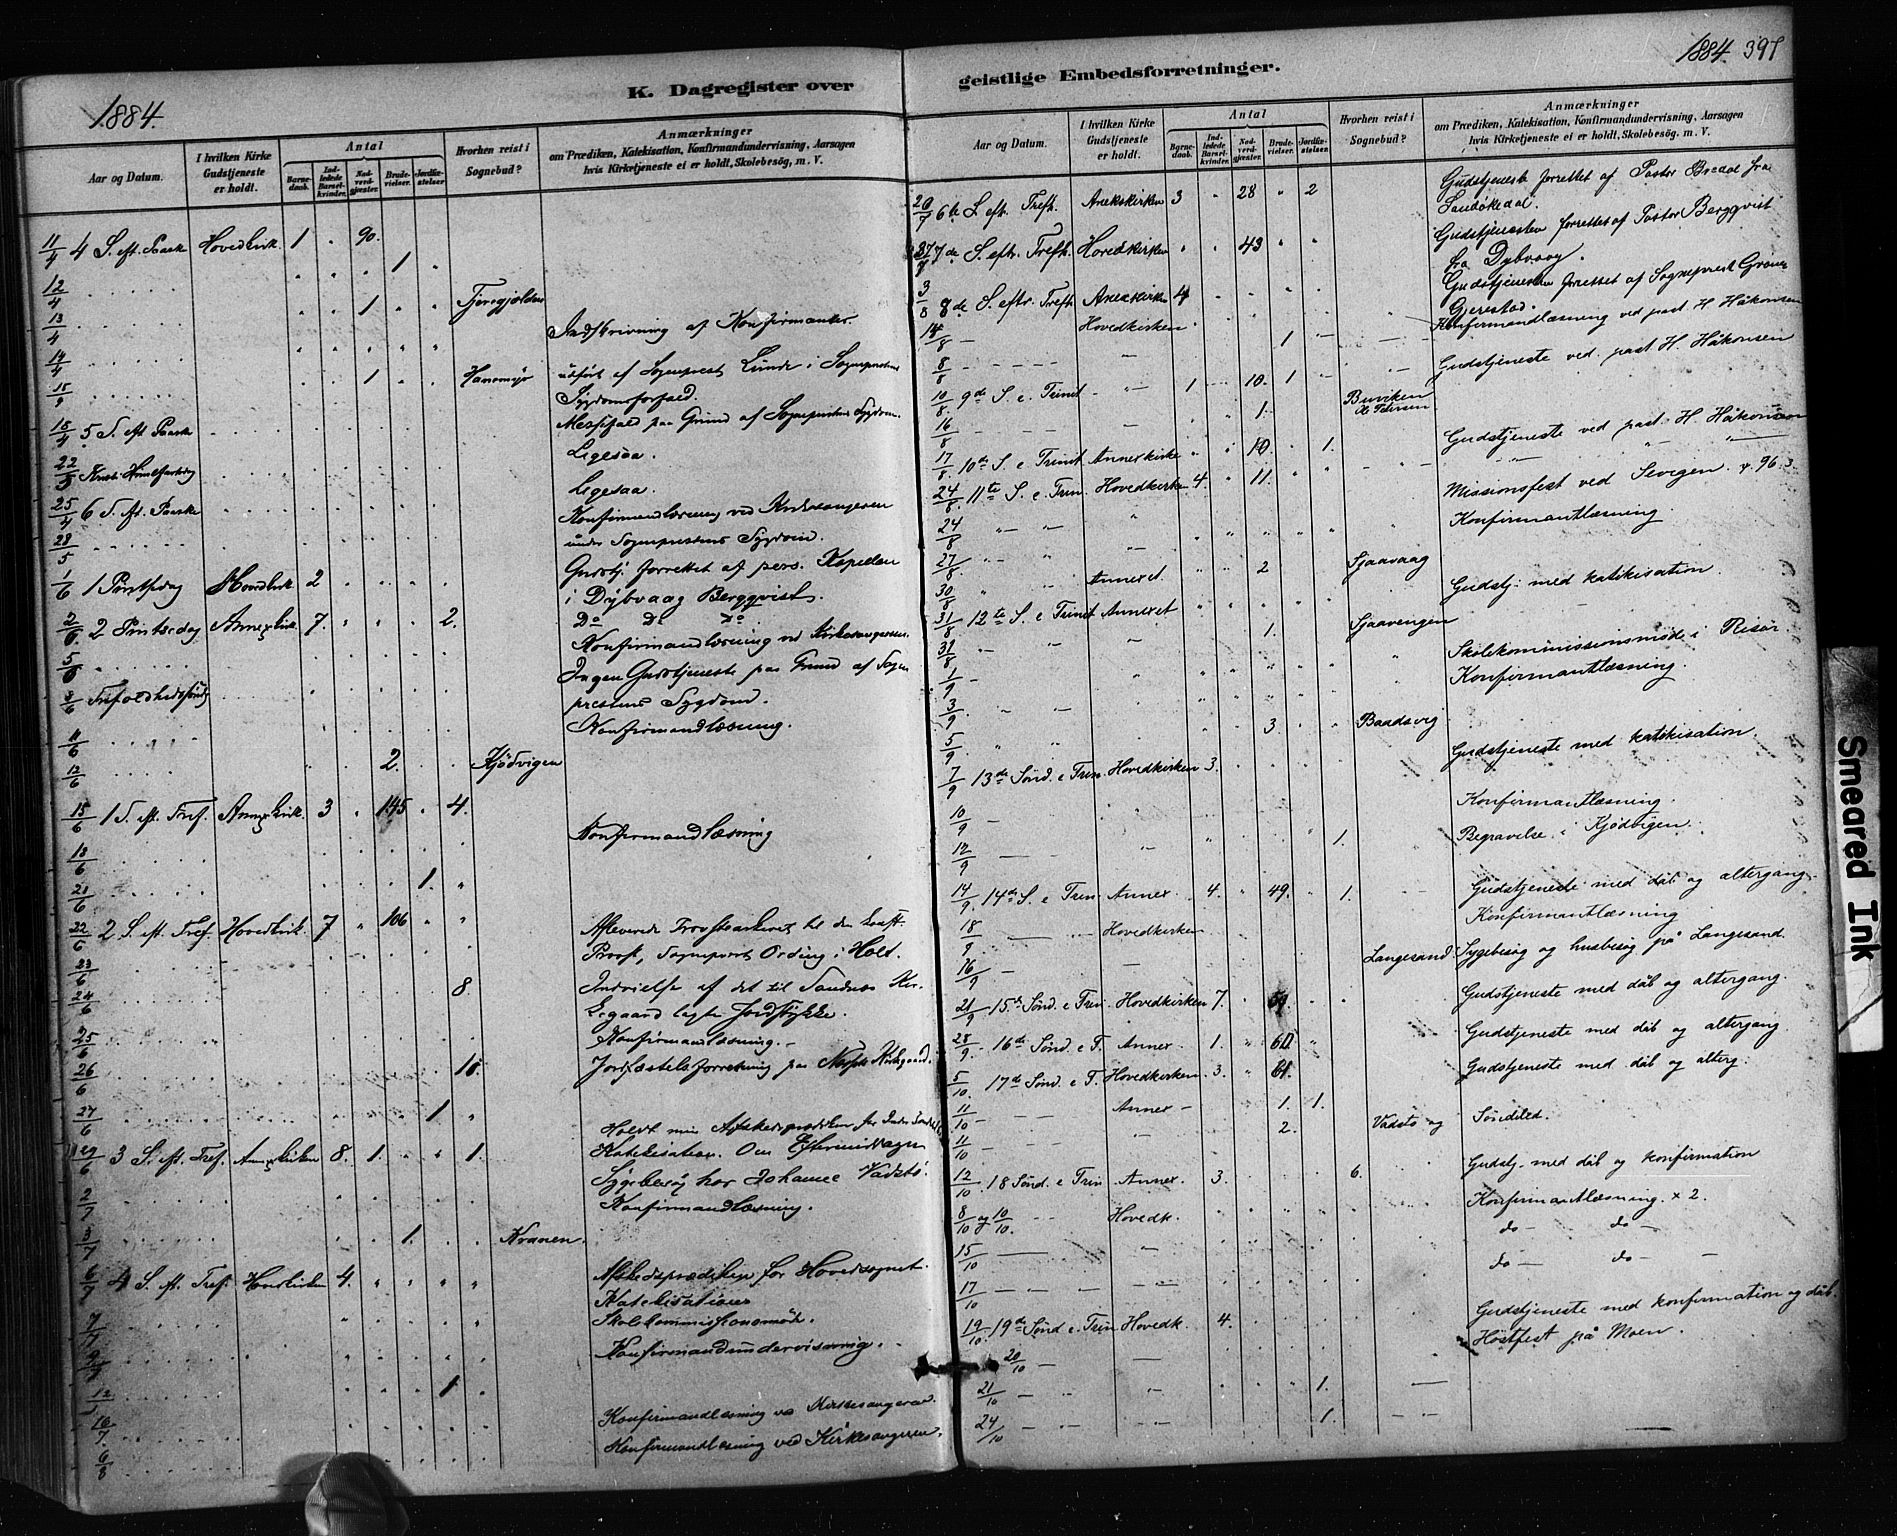 1884.
K. Dagregister over
Aar og Datum.
I hvilken Kirke Gudstjeneste er holdt.
Antal
Barnedaab.
Indledede Barselkvinder.
Nadverdgjæster.
Brudevielser.
Jordfæstelser
Hvorhen reist i Sognebud?
Anmærkninger
om Prædiken, Katekisation, Konfirmandundervisning, Aarsagen
hvis Kirketjeneste ei er holdt, Skolebesög, m. V.
11/4 4 S. eft. Paaske Hovedkirk. 1 " 90.
12/4 1
13/4 1
Indskrivning af Konfirmanter.
14/4
15/ 1 udført af Sogneprest Lunde i Sogneprestens
Sygdomsforfald.
18/4 5 S. eft Paaske Messefald paa Grund af Sogneprestens Sygdom.
22/5 Krist. Himmelfartsdag Ligesaa.
25/4 6 S. eft. Paaske Ligesaa.
28/5 Konfirmandlæsning ved Kirkesangeren
under Sogneprestens Sygdom.
1/6 1 Pintsedag Hovedkirk. 2 Gudstj. forrettet af pers. Kapellan
i Dybvaag Bergqvist.
2/6 2 Pintsedag Annexkirk. 7. 2. Do Do Do
5/6 Konfirmandlæsning ved Kirkesangeren.
8/6 Trefoldhedssøndag Ingen Gudstjeneste paa Grund af Sogne
prestens Sygdom.
11/6 Konfirmandlæsning.
12/6 2. Kjødvigen
15/6 1 S. eft. Tref. Annexkirk. 3 " 145 " 4.
18/6 Konfirmandlæsning
21/6 1. "
22/6 2 S. eft. Tref. Hovedkirk. 7 " 106 " "
23/6 Afleverede Provstearkivet til den konst.
Provst, Sogneprest Ording i Holt.
24/6 8. Indvielse af det til Sandnes Kir-
kegaard lagte Jordstykke.
25/6 Konfirmandlæsning.
26/6 10. Jordfæstelsesforretning paa Kirkegaard.
27/6 1 "
29/6 3 S. eft. Tref. Annexkirken 8. 1. " " 1. Holdt min Afskedsprædiken for
Katekisation. Om Eftermiddagen
Sygebesøg hos Johanne Vadstø.
2/7 Konfirmandlæsning.
3/7 1. Kranen.
6/7 4 S. eft. Tref. Hovedkirken 4. Afskedsprædiken for Hovedsognet.
Katekisation
7/7 Skolekommissionsmøde.
9/7 Konfirmandundervisning.
12/7 1
16/7 Konfirmandlæsning ved Kirkesangeren
6/8 Konfirmandlæsning ved Kirkesangeren.
geistlige Embedsforretninger.
1884. 397
Aar og Datum.
I hvilken Kirke Gudstjeneste er holdt.
Antal
Barnedaab.
Indledede Barselkvinder.
Nadverdgjæster.
Brudevielser.
Jordfæstelser
Hvorhen reist i Sognebud?
Anmærkninger
om Prædiken, Katekisation, Konfirmandundervisning, Aarsagen
hvis Kirketjeneste ei er holdt, Skolebesög. m. V.
20/7 6te S. eft. Trefh. Anekskirken 3 " 28 " 2 Gudstjeneste forrettet af Pastor Bredal fra
Sandøkedal.
27/7 7de S. eftr. Trefh. Hovedkirken " " 43 " " Gudstjenesten forrettet af Pastor Bergqvist
fra Dybvaag.
3/8 8de S. eftr. Trefh. Anexkirken 4 Gudstjenesten forrettet af Sogneprest
Gjerestad.
Hovedkirken Konfirmandlæsning ved past. H Håkonsen
8/8 1
10/8 9de S. e. Trinit 1 10. 1 Gudstjeneste ved past. H. Håkonsen
16/8 1. Buviken
Pedersen
17/8. 10de S. e Trinit Annexkirke " " 10. 1. Gudstjeneste ved past. H. Håkonsen
24/8. 11te S. e. Trin. Hovedkirken 4. " 11.
24/8 Missionsfest ved Sevigen
27/8. Konfirmantlæsning.
30/8 Annexet. 2 Sjaavaag
31/8 12te S. e Trinit Annexet Gudstj. med katikisation.
31/8 1. Sjaavengen
1/9 Skolekommissionsmøde i Risør.
3/9 Konfirmantlæsning.
5/9 3. Baadsvig
7/9 13de Sønd. e Trin Hovedkirken 3. Gudstjeneste med katikisation.
10/9 Konfirmantlæsning.
12/9 1. Begravelse i Kjødvigen.
14/9. 14de S. e Trin Annex. 4. " 49. " 1. Gudstjeneste med dåb og altergang.
18/9 Hovedkirken Konfirmantlæsning
16/9 Langesand Sygebesøg og husbesøg på Langesand.
21/9 15de Sønd. e Trin. Hovedkirken 7. Gudstjeneste med dåb og altergang.
28/9. 16de Sønd. e T. Annex. 1. Gudstjeneste med dåb og altergang.
5/10. 17de Sønd. e T. Hovedkirken. 3. Gudstjeneste med dåb og alterg.
11/10 Annex 1. 1.
11/10 2. Vadstø og Søndeled.
12/10. 18 Sønd. e Trin Annex. 3. 6. Gudstj. med dåb og konfirmation
8/10 og 10/10. Hovedk. Konfirmantlæsning. x 2.
15/10 do do
17/10 do do
19/10. 19de Sønd e. Trin Hovedk. 4. Gudstjeneste med konfirmation og dåb.
20/10 Høstfest på Moen.
21/10 1.
24/10 1.
Smeared Ink